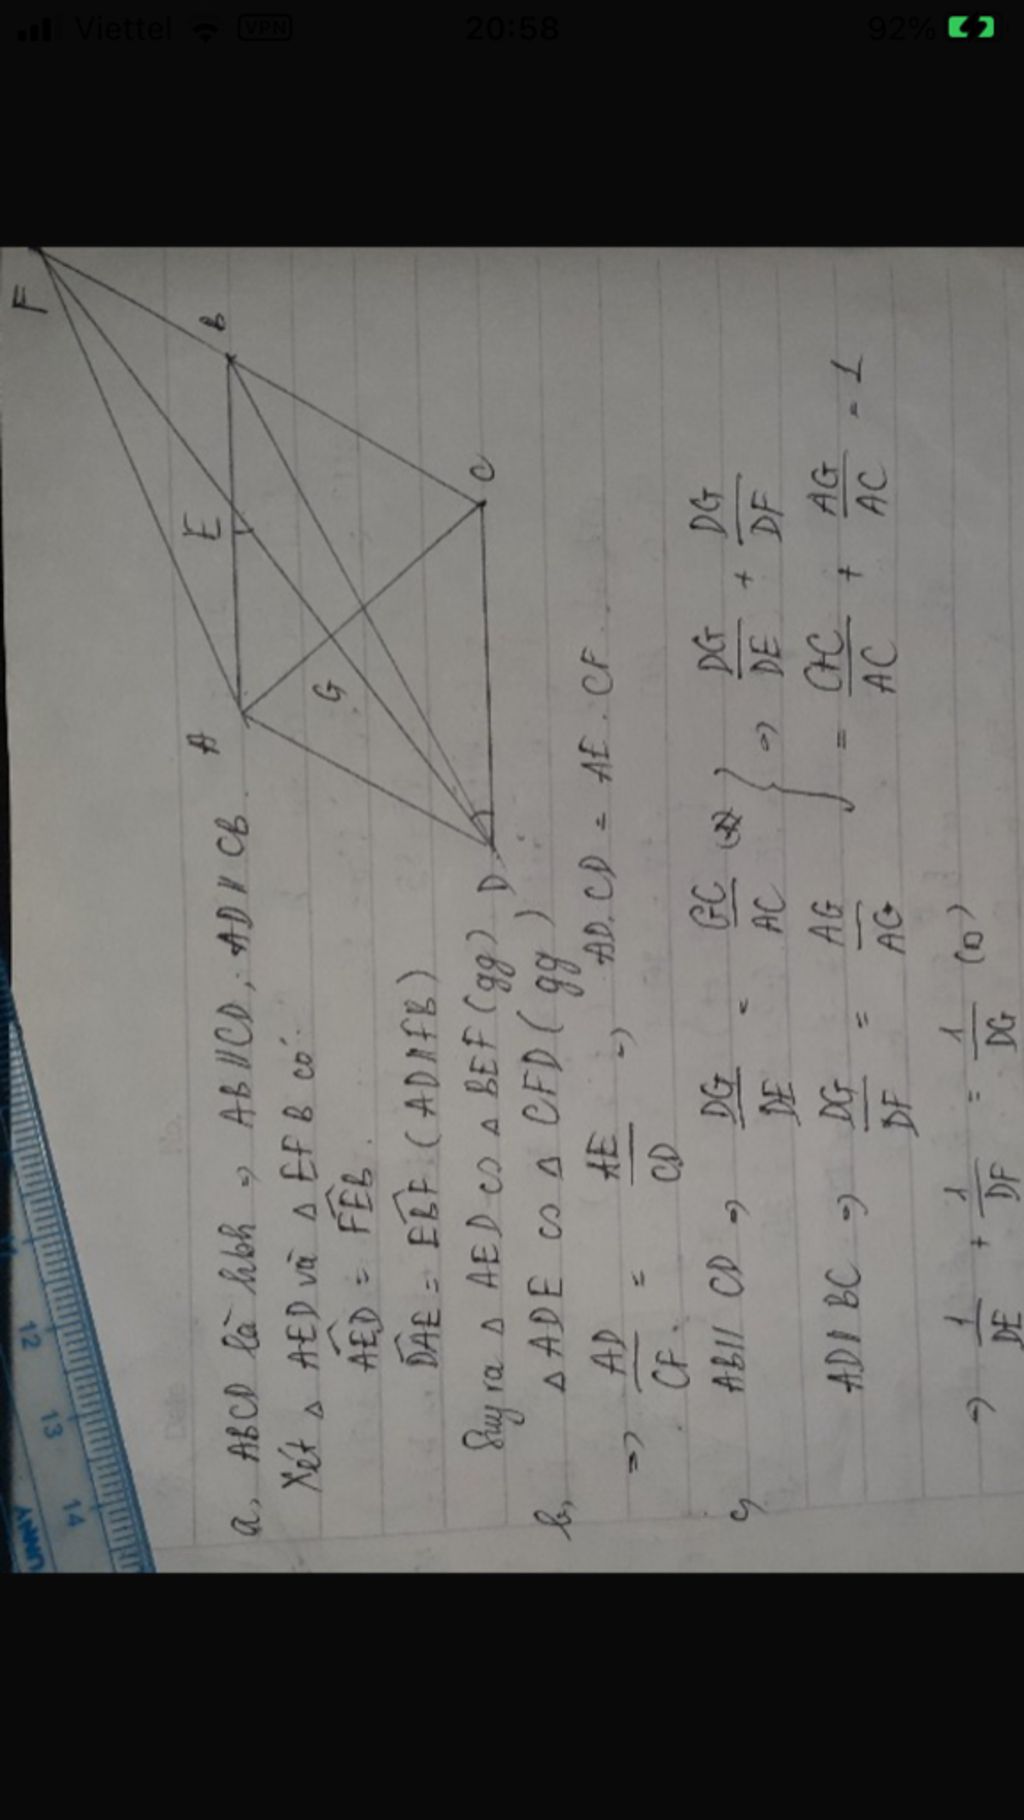 Viettel VPN 20:58 92%
12 13 14
F
B
E
A
C
G
D
a, ABCD là hbh => AB//CD; AD//CB
Xét △ AED và △ EFB có:
AED = FEB
DAE = EBF (AD//FB)
Suy ra △ AED ∽ △ BEF (gg)
b, △ ADE ∽ △ CFD (gg)
=> AD/CF = AE/CD => AD.CD = AE.CF
c, AB//CD => DG/DE = GC/AC
AD//BC => DG/DF = AG/AG
} => DG/DE + DG/DF
= GC/AC + AG/AC = 1
=> 1/DE + 1/DF = 1/DG